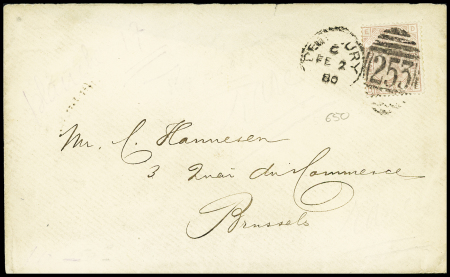 DEWSBURY
C
FE 2
80
255
650
Mr. C. Hannesen
3 Quai du Commerce
Brussels